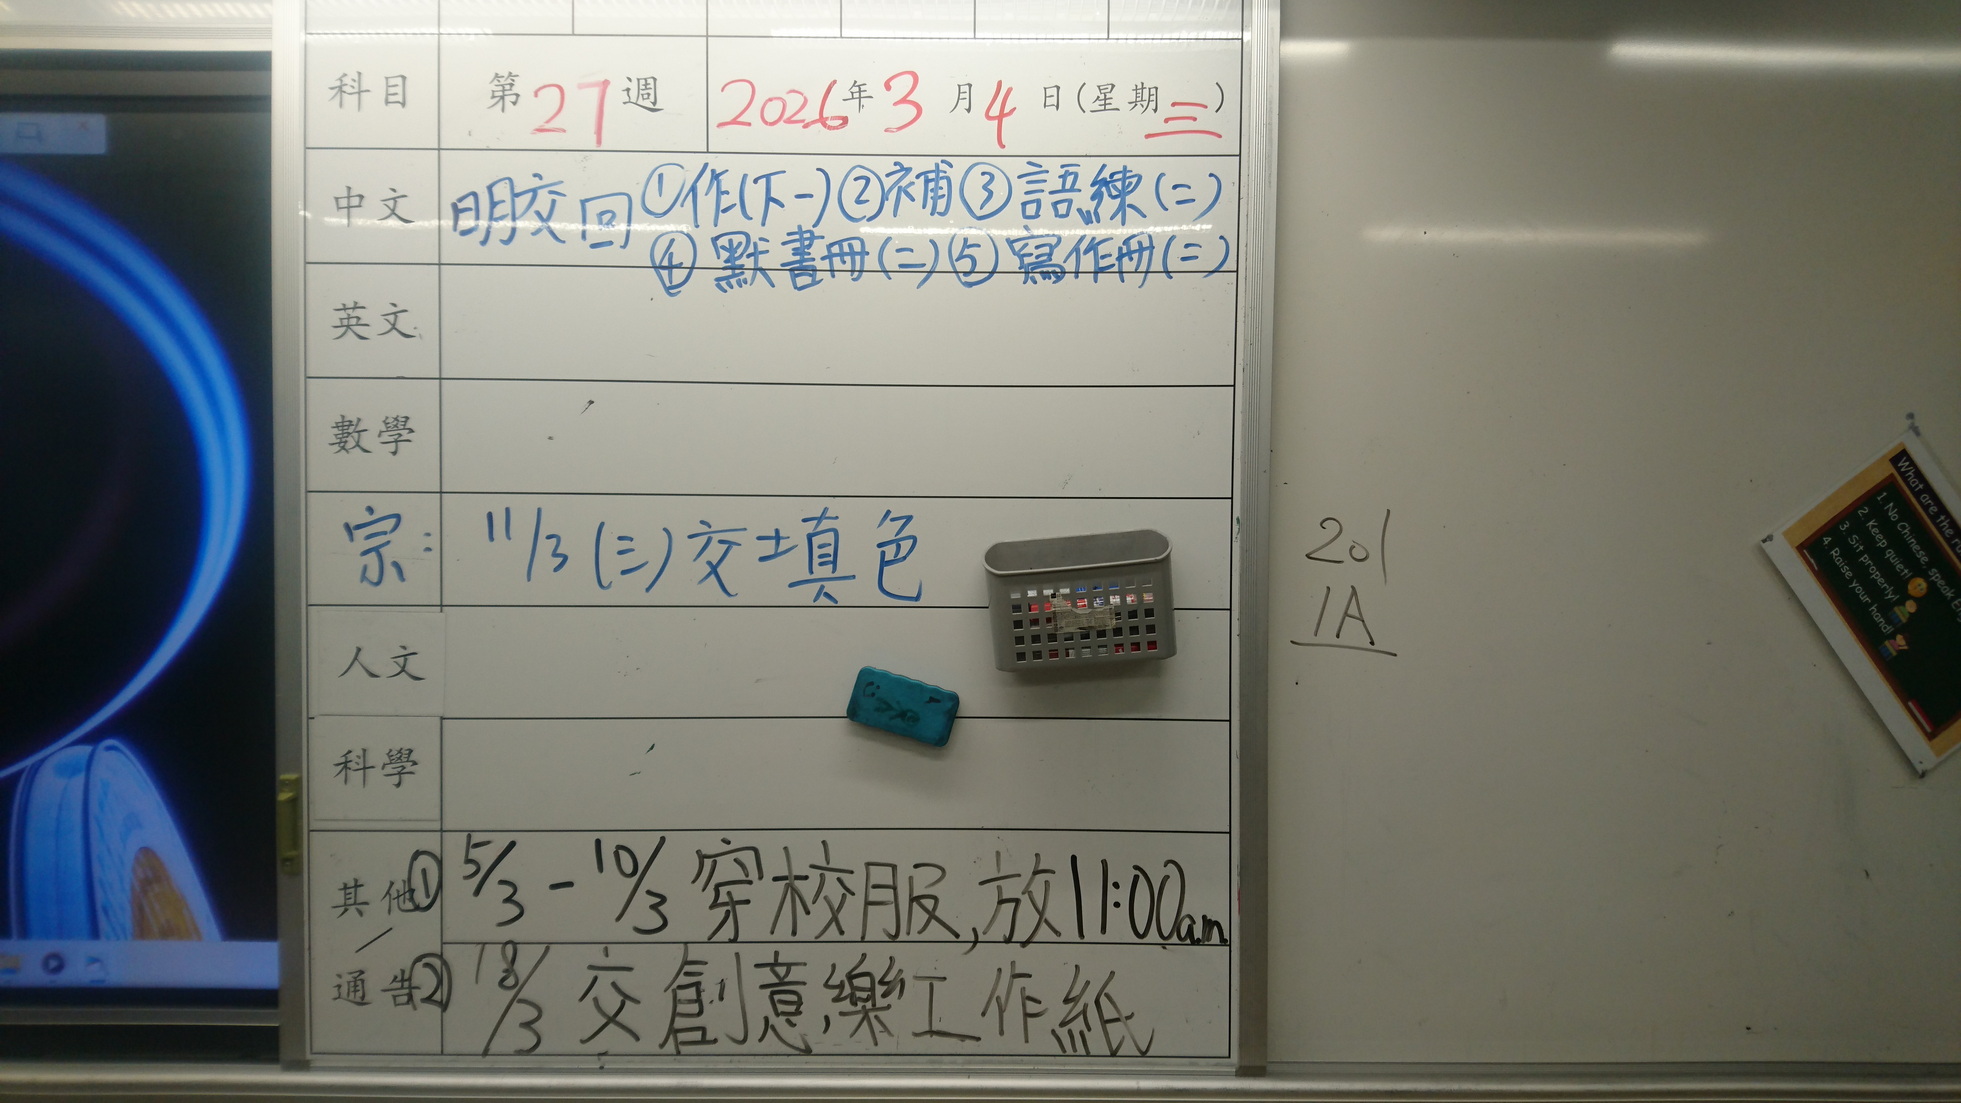 科目 第27週 2026年3月4日(星期三)
中文 明交回①作(下一)②補③語練(二)
④默書冊(二)⑤寫作冊(二)
英文
數學
宗: 11/3(三)交填色
人文
科學
其他① 5/3-10/3穿校服,放11:00a.m.
通告② 18/3交創意樂工作紙
201
1A
What are the
1. No Chinese, speak
2. Keep quiet!
3. Sit properly!
4. Raise your hand!